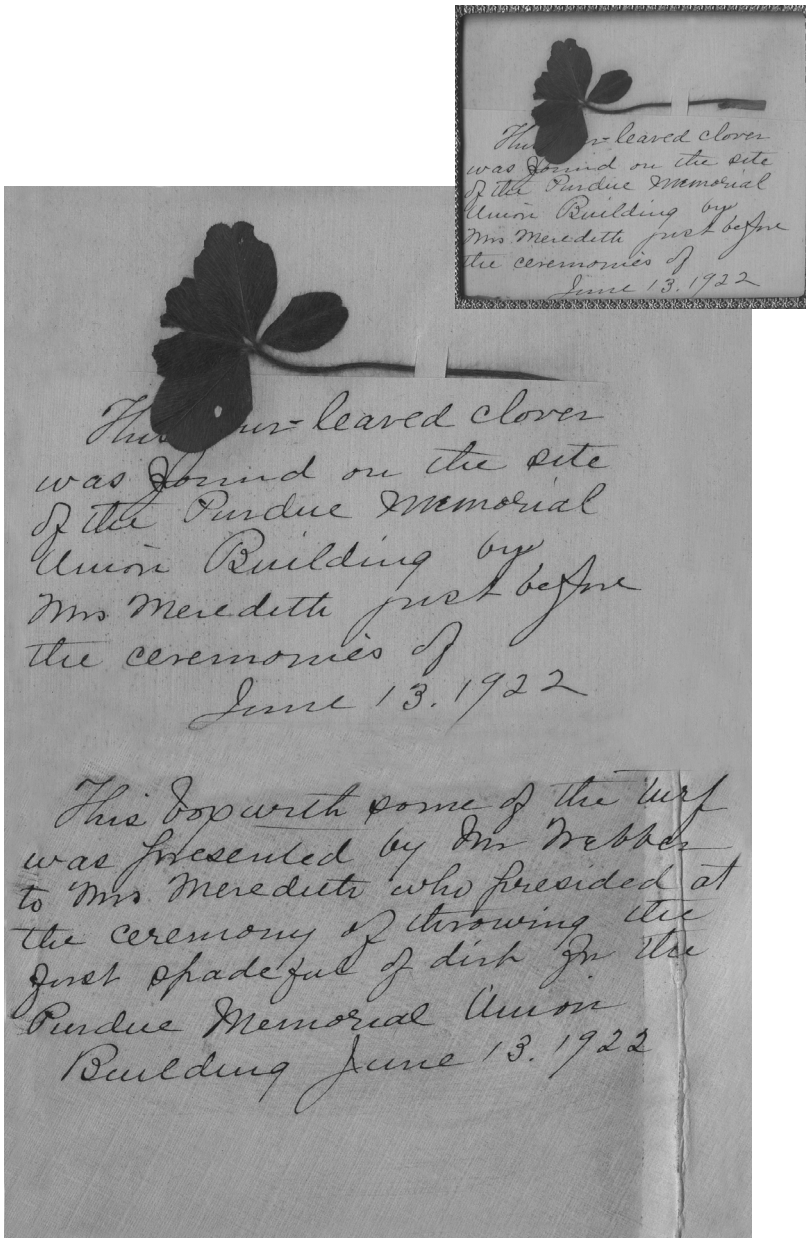 This four-leaved clover
was found on the site
of the Purdue Memorial
Union Building by
Mrs Meredith just before
the ceremonies of
June 13. 1922
This four-leaved clover
was found on the site
of the Purdue Memorial
Union Building by
Mrs Meredith just before
the ceremonies of
June 13. 1922
This box with some of the turf
was presented by Mr Webber
to Mrs Meredith who presided at
the ceremony of throwing the
first spadeful of dirt for the
Purdue Memorial Union
Building June 13. 1922